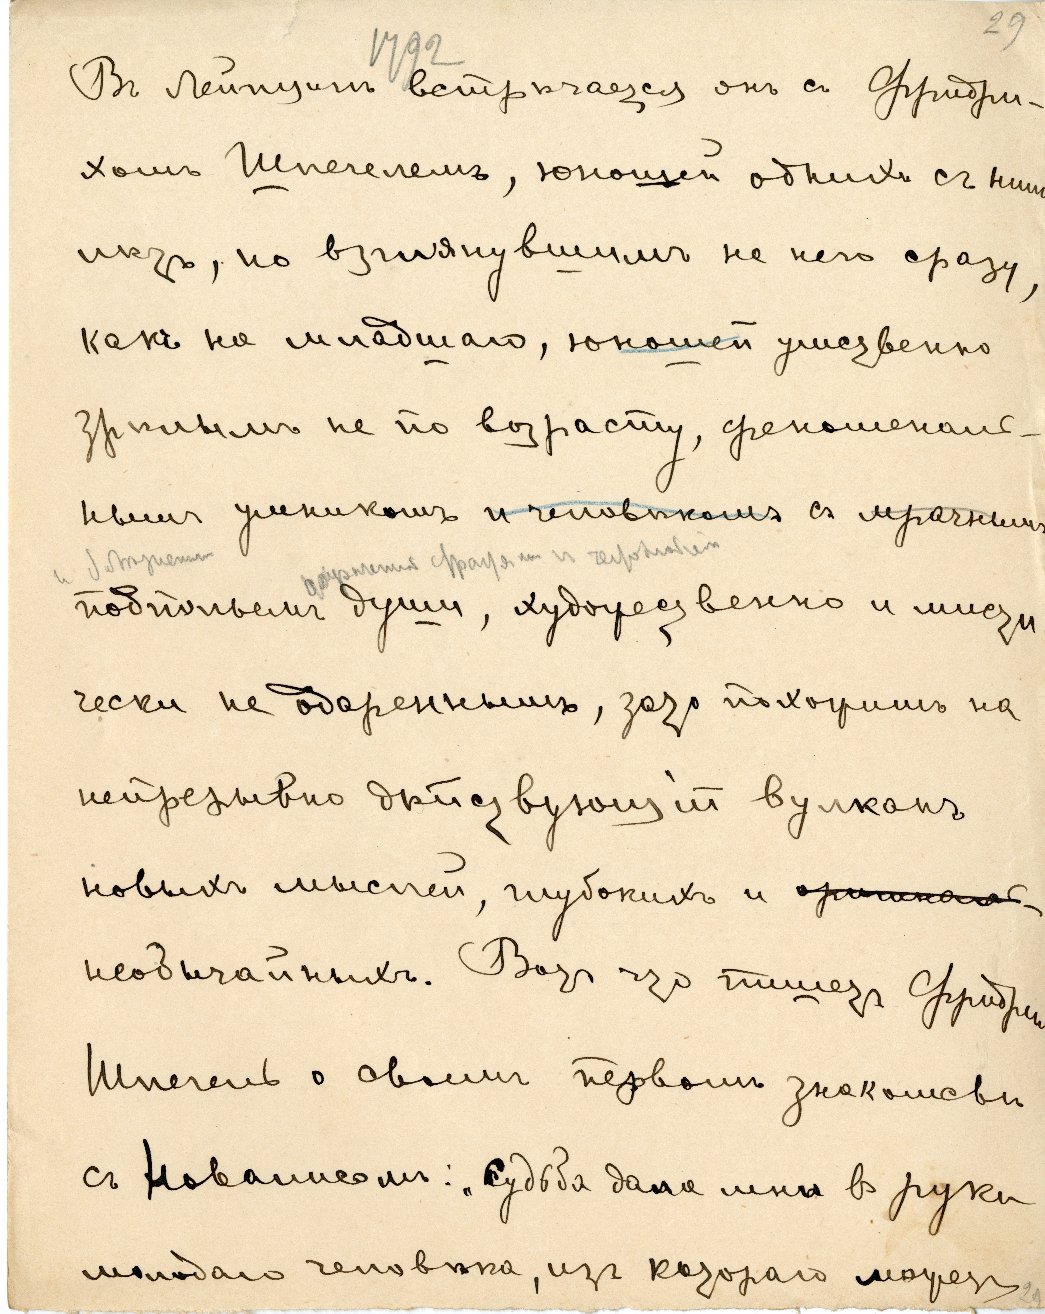 1792
29
Въ Лейпцигѣ встрѣчается онъ съ Фридри-
хомъ Шлегелемъ, юношей однихъ съ нимъ
лѣтъ, но взглянувшимъ на него сразу,
какъ на младшаго, юношей умственно
зрѣлымъ не по возрасту, феноменаль-
нымъ умникомъ и человѣкомъ съ мрачнымъ
и
подпольемъ души, художественно и мисти
чески не одареннымъ, зато похожимъ на
непрерывно дѣйствующій вулканъ
новыхъ мыслей, глубокихъ и оригиналь-
необычайныхъ. Вотъ что пишетъ Фридрих
Шлегель о своемъ первомъ знакомствѣ
съ Новалисомъ: „Судьба дала мнѣ въ руки
молодаго человѣка, изъ котораго можетъ
29